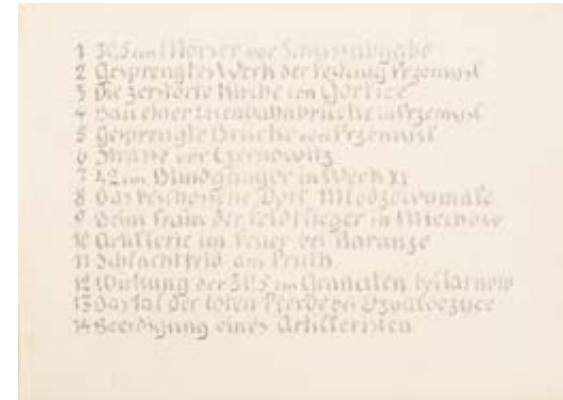 1 30.5 cm Mörser vor Schussabgabe
2 Gesprengtes Werk der Festung Przemysl
3 Die zerstörte Kirche von Gorlice
4 Bau einer Eisenbahnbrücke in Przemysl
5 Gesprengte Brücke von Przemysl
6 Strasse vor Czernowitz
7 42 cm Blindgänger in Werk XI
8 Das beschossene Dorf
9 Beim Train der Feldflieger in
10 Artillerie im Feuer bei
11 Schlachtfeld am Pruth
12 Wirkung der 30.5 cm Granaten bei Tarnow
13 Das Tal der toten Pferde bei
14 Beerdigung eines Artilleristen